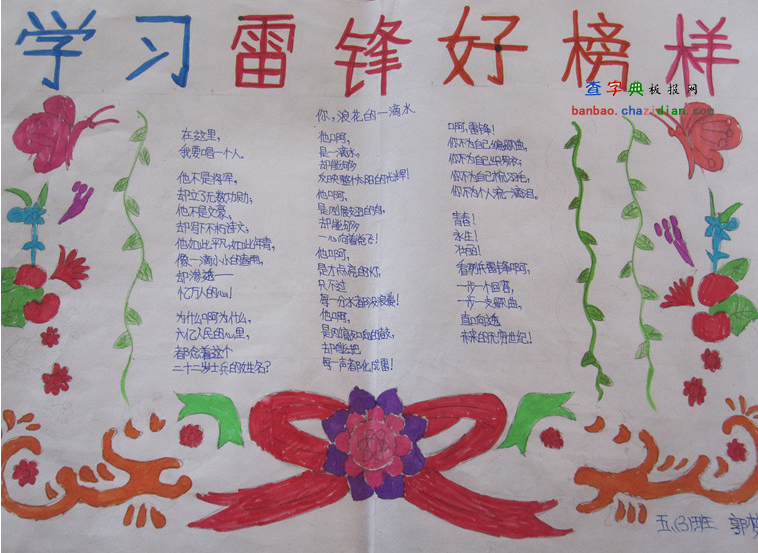 学习雷锋好榜样
查字典板报网
banbao.chazidian.com
你,浪花的一滴水
在这里,
我要唱一个人。
他不是将军,
却立了无数功勋;
他不是文豪,
却写下不朽诗文;
他如此平凡,如此年青,
像一滴小小的春雨,
却渗透——
亿万人的心!
为什么啊为什么,
六亿人民的心里,
都念着这个
二十二岁士兵的姓名?
他啊,
是一滴水,
却能够
反映整个太阳的光辉!
他啊,
是刚展翅的鸟,
却能够
一心向着党飞!
他啊,
是才点亮的灯,
只不过
每一分
他啊,
是刚敲响的鼓,
却能把
每一声都化成雷!
啊,雷锋!
你不为自己编歌曲,
你不为自己织罗衣;
你不为自己梳羽毛,
你不为个人流一滴泪。
青春!
永生!
壮丽!
看朝来雷锋啊,
一步一个回答,
一步一支歌曲,
直向
未来的无穷世纪!
五(3)班 郭